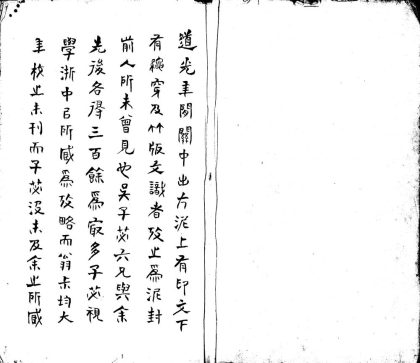 道光年間關中出古泥上有印文下
有繩穿及竹版文識者攷止爲泥封
前人所未曾見也吳子苾六兄與余
先後各得三百餘爲寂多子苾視
學浙中以所臧爲攷略而翁未均大
年校止未刊而子苾沒未及余止所臧